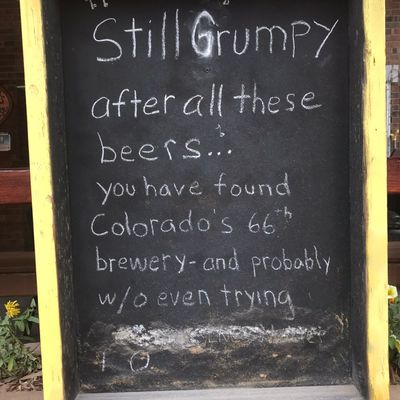 Still Grumpy
after all these
beers...
you have found
Colorado's 66th
brewery-and probably
w/o even trying